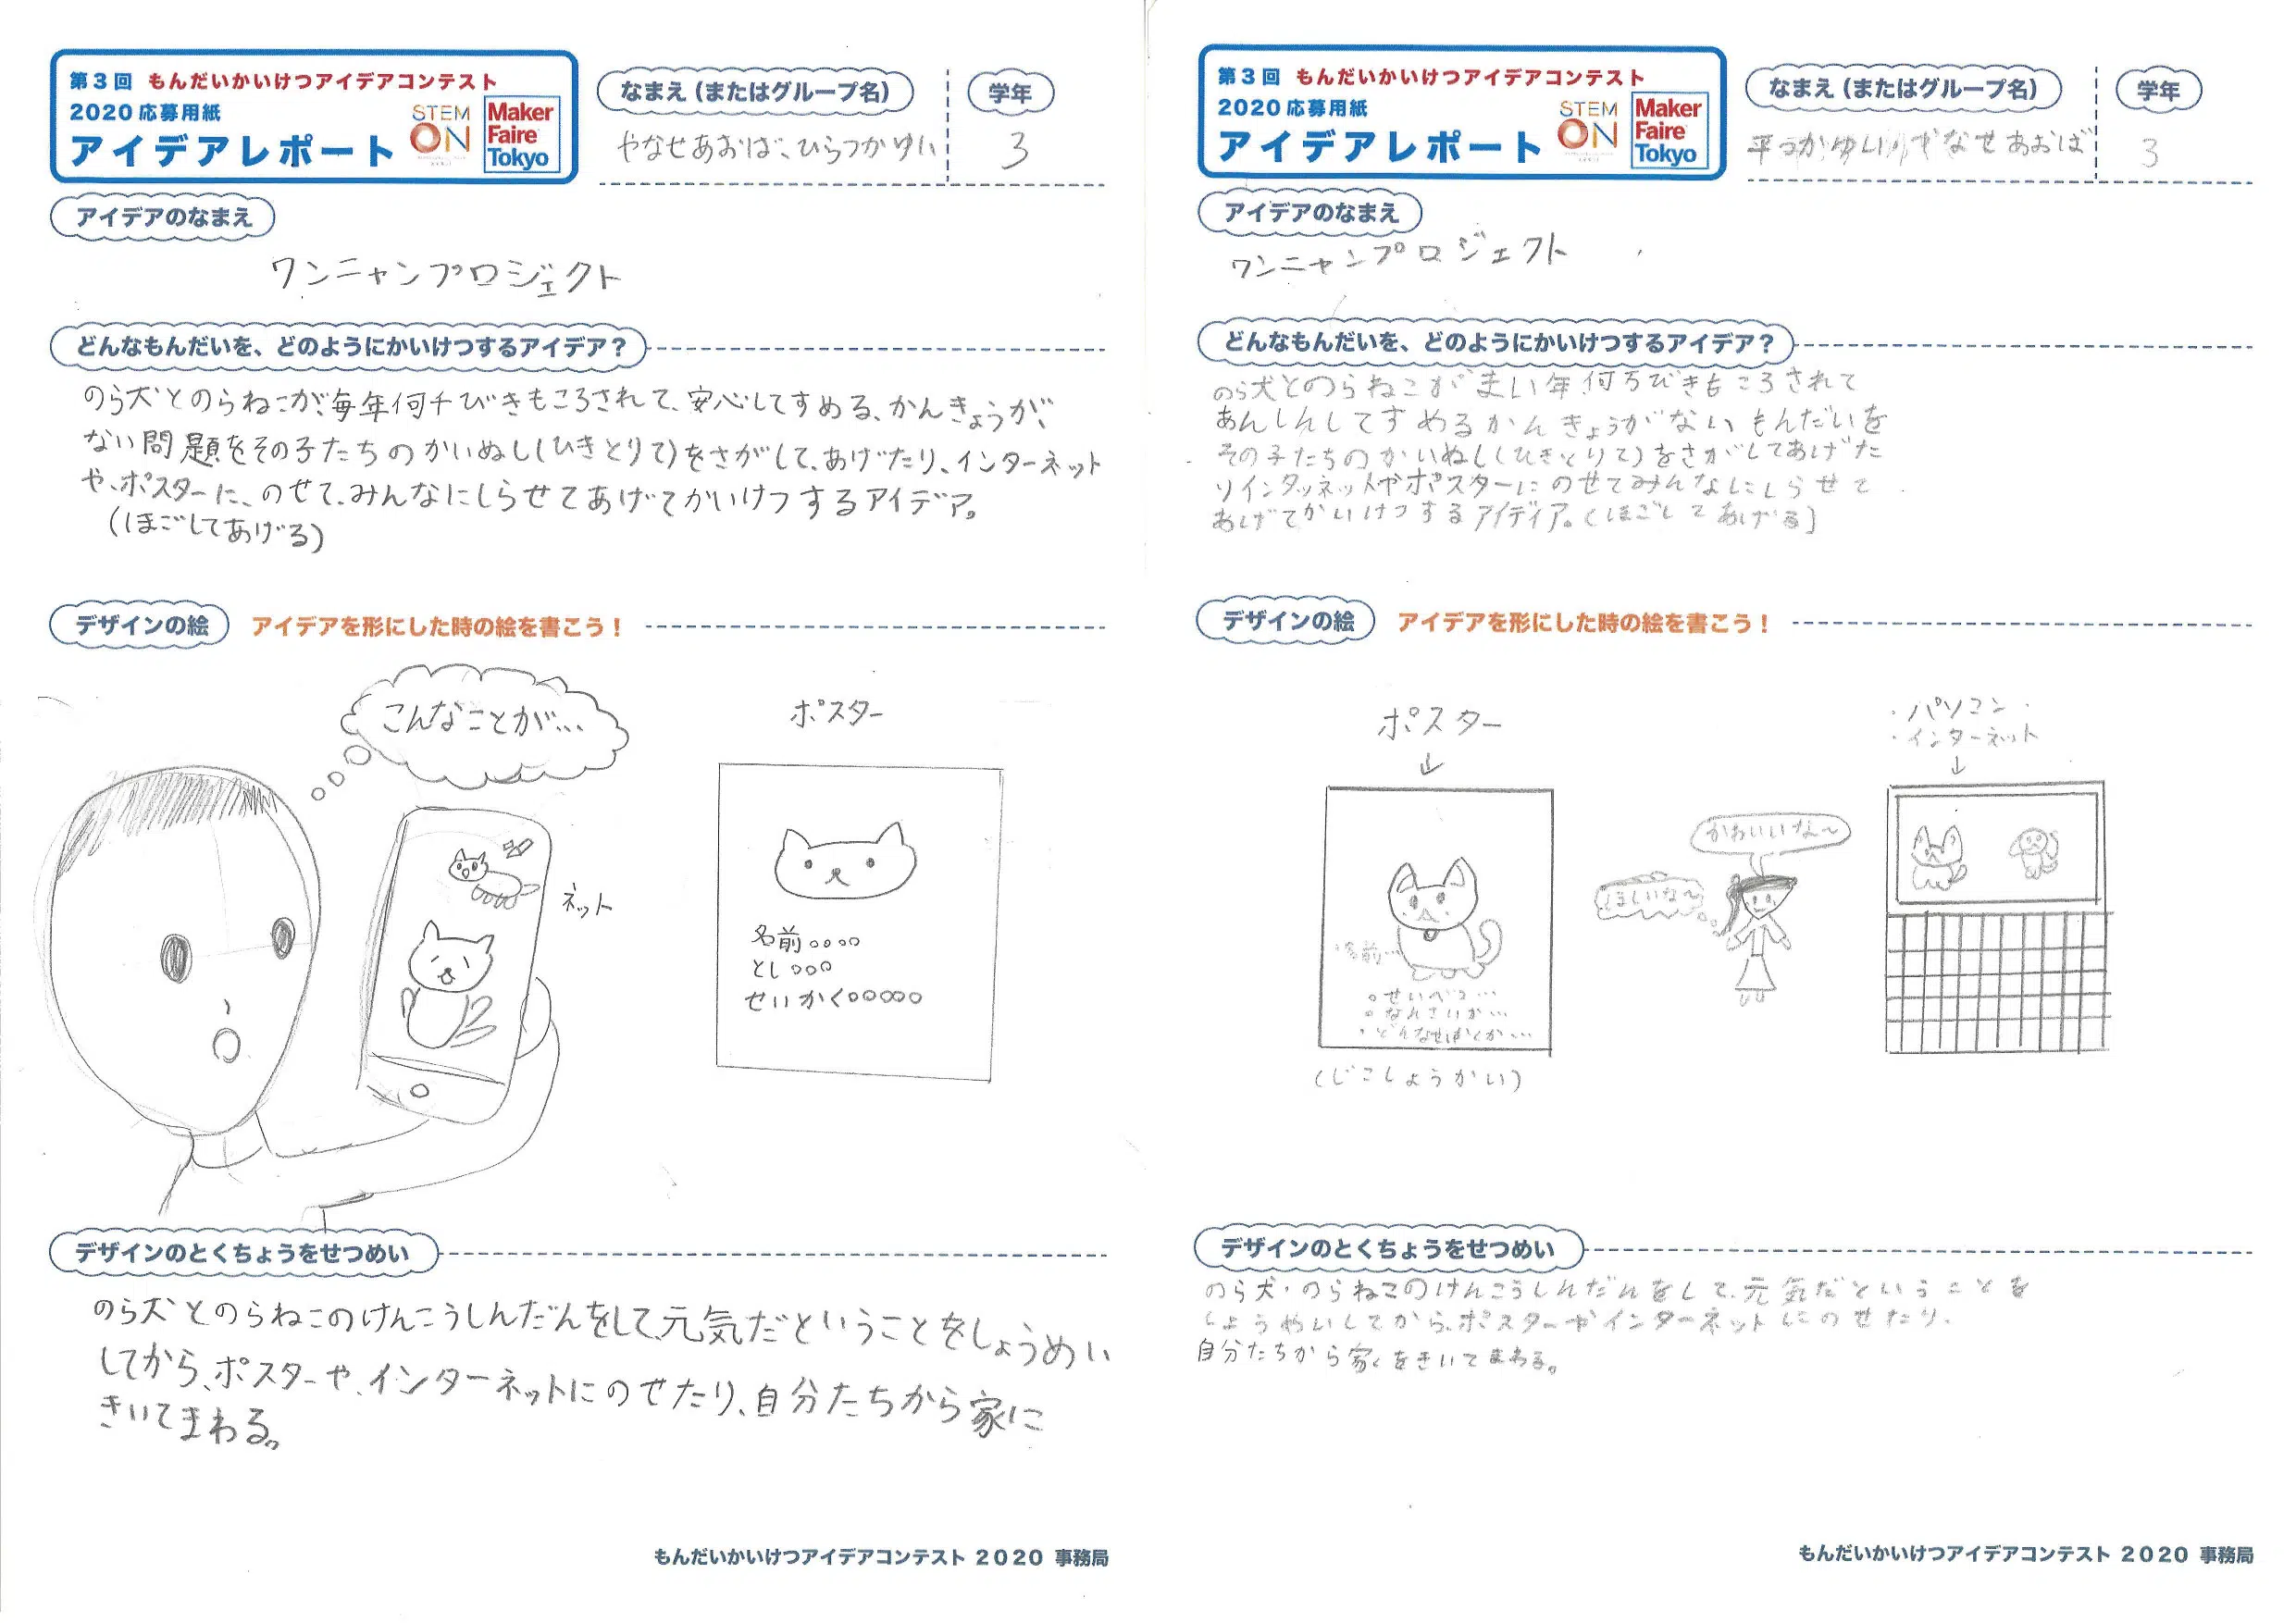 第3回 もんだいかいけつアイデアコンテスト
2020 応募用紙
アイデアレポート
STEM
ON
Maker
Faire
Tokyo
なまえ(またはグループ名)
学年
やなせあおば、ひらつかゆい
3
アイデアのなまえ
ワンニャンプロジェクト
どんなもんだいを、どのようにかいけつするアイデア？
のら犬とのらねこが、毎年何千びきもころされて、安心してすめる、かんきょうが、
ない問題をその子たちのかいぬし(ひきとりて)をさがして、あげたり、インターネット
や、ポスターに、のせて、みんなにしらせてあげてかいけつするアイデア。
(ほごしてあげる)
デザインの絵
アイデアを形にした時の絵を書こう！
こんなことが…
ネット
ポスター
名前。。。。
とし。。。
せいかく○○○○○
デザインのとくちょうをせつめい
のら犬とのらねこのけんこうしんだんをして、元気だということをしょうめい
してから、ポスターや、インターネットにのせたり、自分たちから家に
きいてまわる。
もんだいかいけつアイデアコンテスト 2020 事務局
第3回 もんだいかいけつアイデアコンテスト
2020 応募用紙
アイデアレポート
STEM
ON
Maker
Faire
Tokyo
なまえ(またはグループ名)
学年
平つかゆい やなせあおば
3
アイデアのなまえ
ワンニャンプロジェクト
どんなもんだいを、どのようにかいけつするアイデア？
のら犬とのらねこがまい年何万びきもころされて
あんしんしてすめるかんきょうがないもんだいを
その子たちのかいぬし(ひきとりて)をさがしてあげた
りインタッネットやポスターにのせてみんなにしらせて
あげてかいけつするアイディア。(ほごしてあげる)
デザインの絵
アイデアを形にした時の絵を書こう！
ポスター
↓
・名前…
○せいべつ…
○なんさいか…
・どんなせいかくか…
(じこしょうかい)
かわいいな〜
ほしいな〜
・パソコン・
・インターネット
↓
デザインのとくちょうをせつめい
のら犬・のらねこのけんこうしんだんをして、元気だということを
しょうめいしてから、ポスターやインターネットにのせたり、
自分たちから家をきいてまわる。
もんだいかいけつアイデアコンテスト 2020 事務局